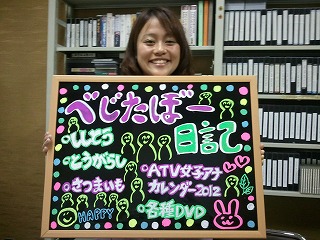 べじたぼー
日記
ししとう
とうがらし
さつまいも
ATV女子アナ
カレンダー2012
各種DVD
HAPPY